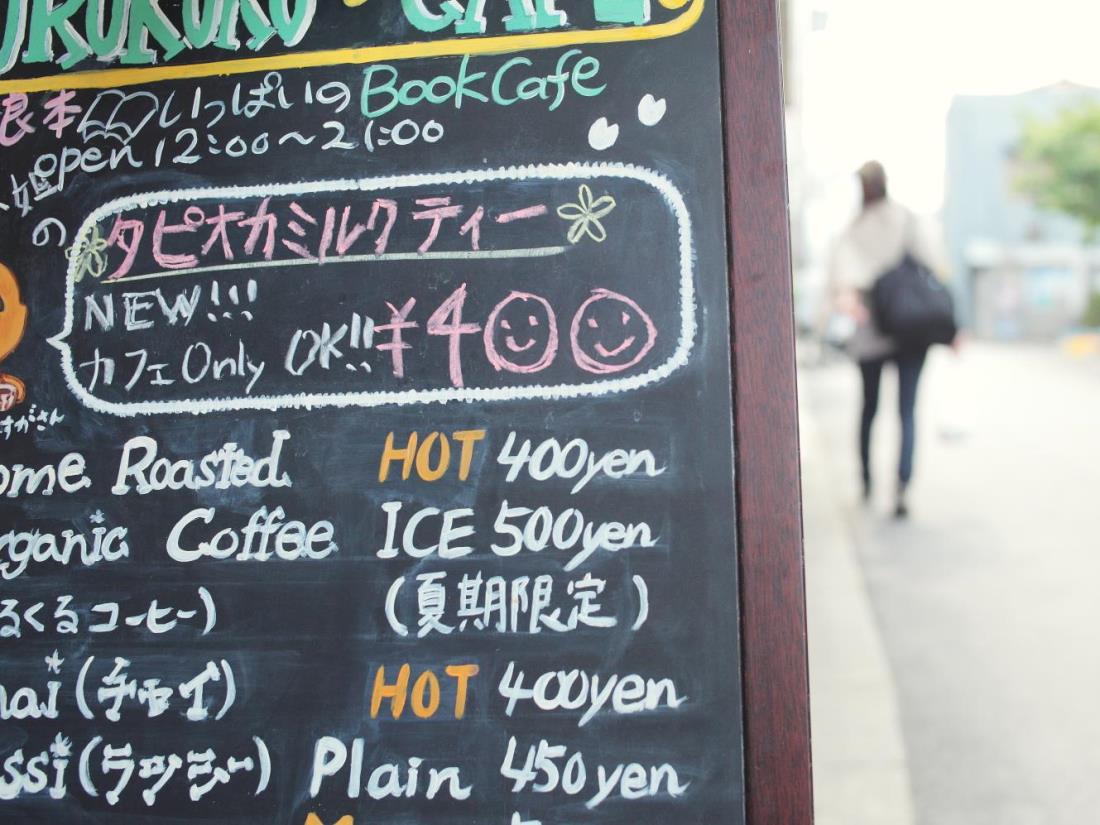 URUKURU CAFE
本いっぱいの Book Cafe
open 12:00〜21:00
の
タピオカミルクティー
NEW!!!
カフェ Only OK!! ¥400
すがさん
ome Roasted HOT 400yen
rganic Coffee ICE 500yen
るくるコーヒー) (夏期限定)
hai (チャイ) HOT 400yen
ssi (ラッシー) Plain 450yen